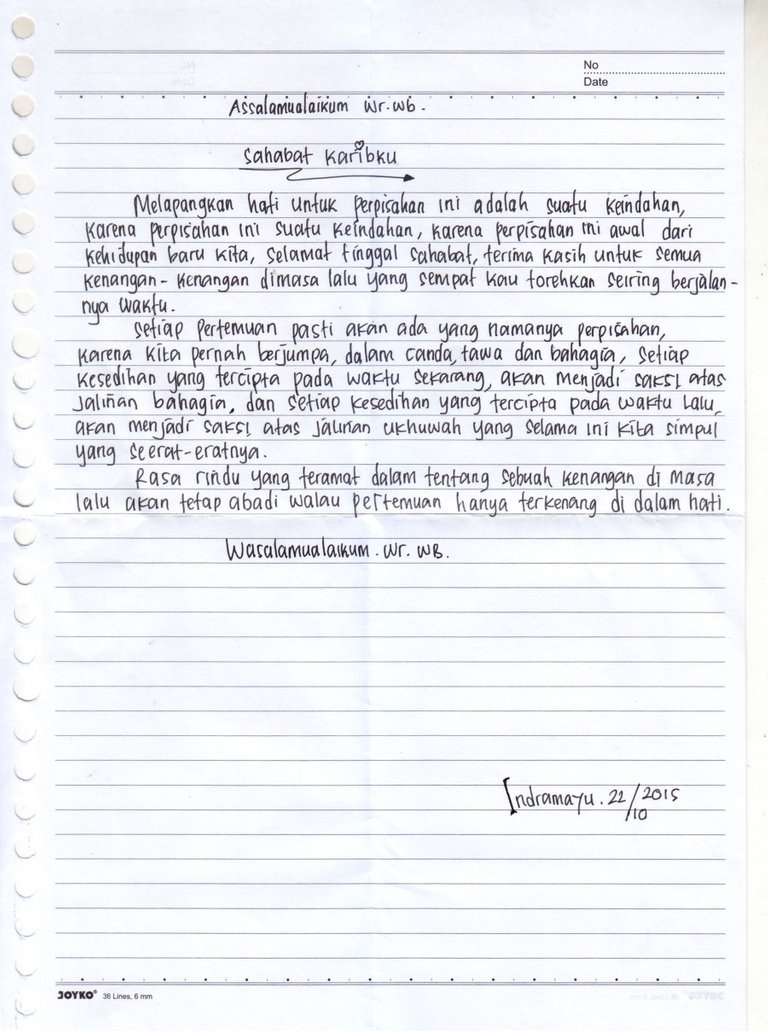 No
Date
Assalamualaikum Wr. Wb.
Sahabat Karibku
Melapangkan hati untuk perpisahan ini adalah suatu keindahan,
karena perpisahan ini suatu keindahan, karena perpisahan ini awal dari
kehidupan baru kita, selamat tinggal sahabat, terima kasih untuk semua
kenangan-kenangan dimasa lalu yang sempat kau torehkan seiring berjalan-
nya waktu.
Setiap pertemuan pasti akan ada yang namanya perpisahan,
karena kita pernah berjumpa, dalam canda, tawa dan bahagia, setiap
kesedihan yang tercipta pada waktu sekarang, akan menjadi saksi atas
jalinan bahagia, dan setiap kesedihan yang tercipta pada waktu lalu,
akan menjadi saksi atas jalinan ukhuwah yang selama ini kita simpul
yang seerat-eratnya.
Rasa rindu yang teramat dalam tentang sebuah kenangan di masa
lalu akan tetap abadi walau pertemuan hanya terkenang di dalam hati.
Wasalamualaikum. Wr. WB.
Indramayu. 22/10 2015
JOYKO® 36 Lines, 6 mm